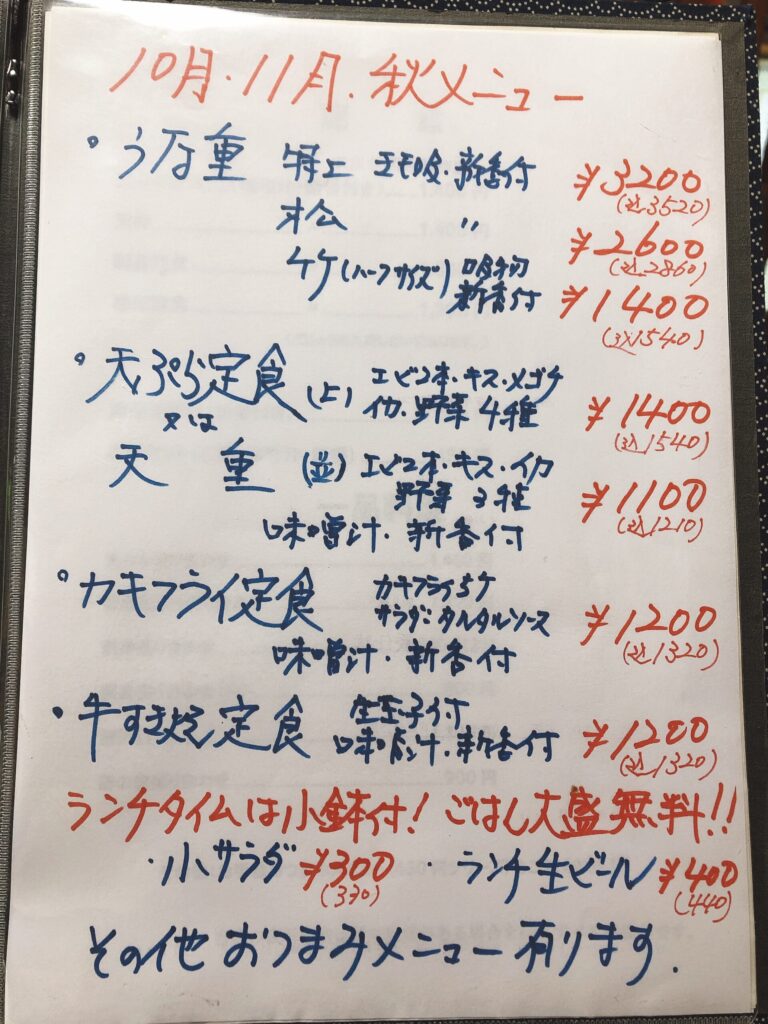 10月・11月.秋メニュー
・うな重 特上 肝吸・新香付 ¥3200
(込3520)
松 〃 ¥2600
(込2860)
竹(ハーフサイズ) 吸物 新香付 ¥1400
(込1540)
・天ぷら定食 (上) エビ2本・キス・メゴチ
又は イカ・野菜4種 ¥1400
(込1540)
天重 (並) エビ2本・キス・イカ
野菜3種 ¥1100
(込1210)
味噌汁・新香付
・カキフライ定食 カキフライ5ケ
サラダ:タルタルソース ¥1200
(込1320)
味噌汁・新香付
・牛すき煮定食 生玉子付
味噌汁・新香付 ¥1200
(込1320)
ランチタイムは小鉢付!ごはん大盛無料!!
・小サラダ ¥300 ランチ生ビール ¥400
(330) (440)
その他おつまみメニュー有ります.